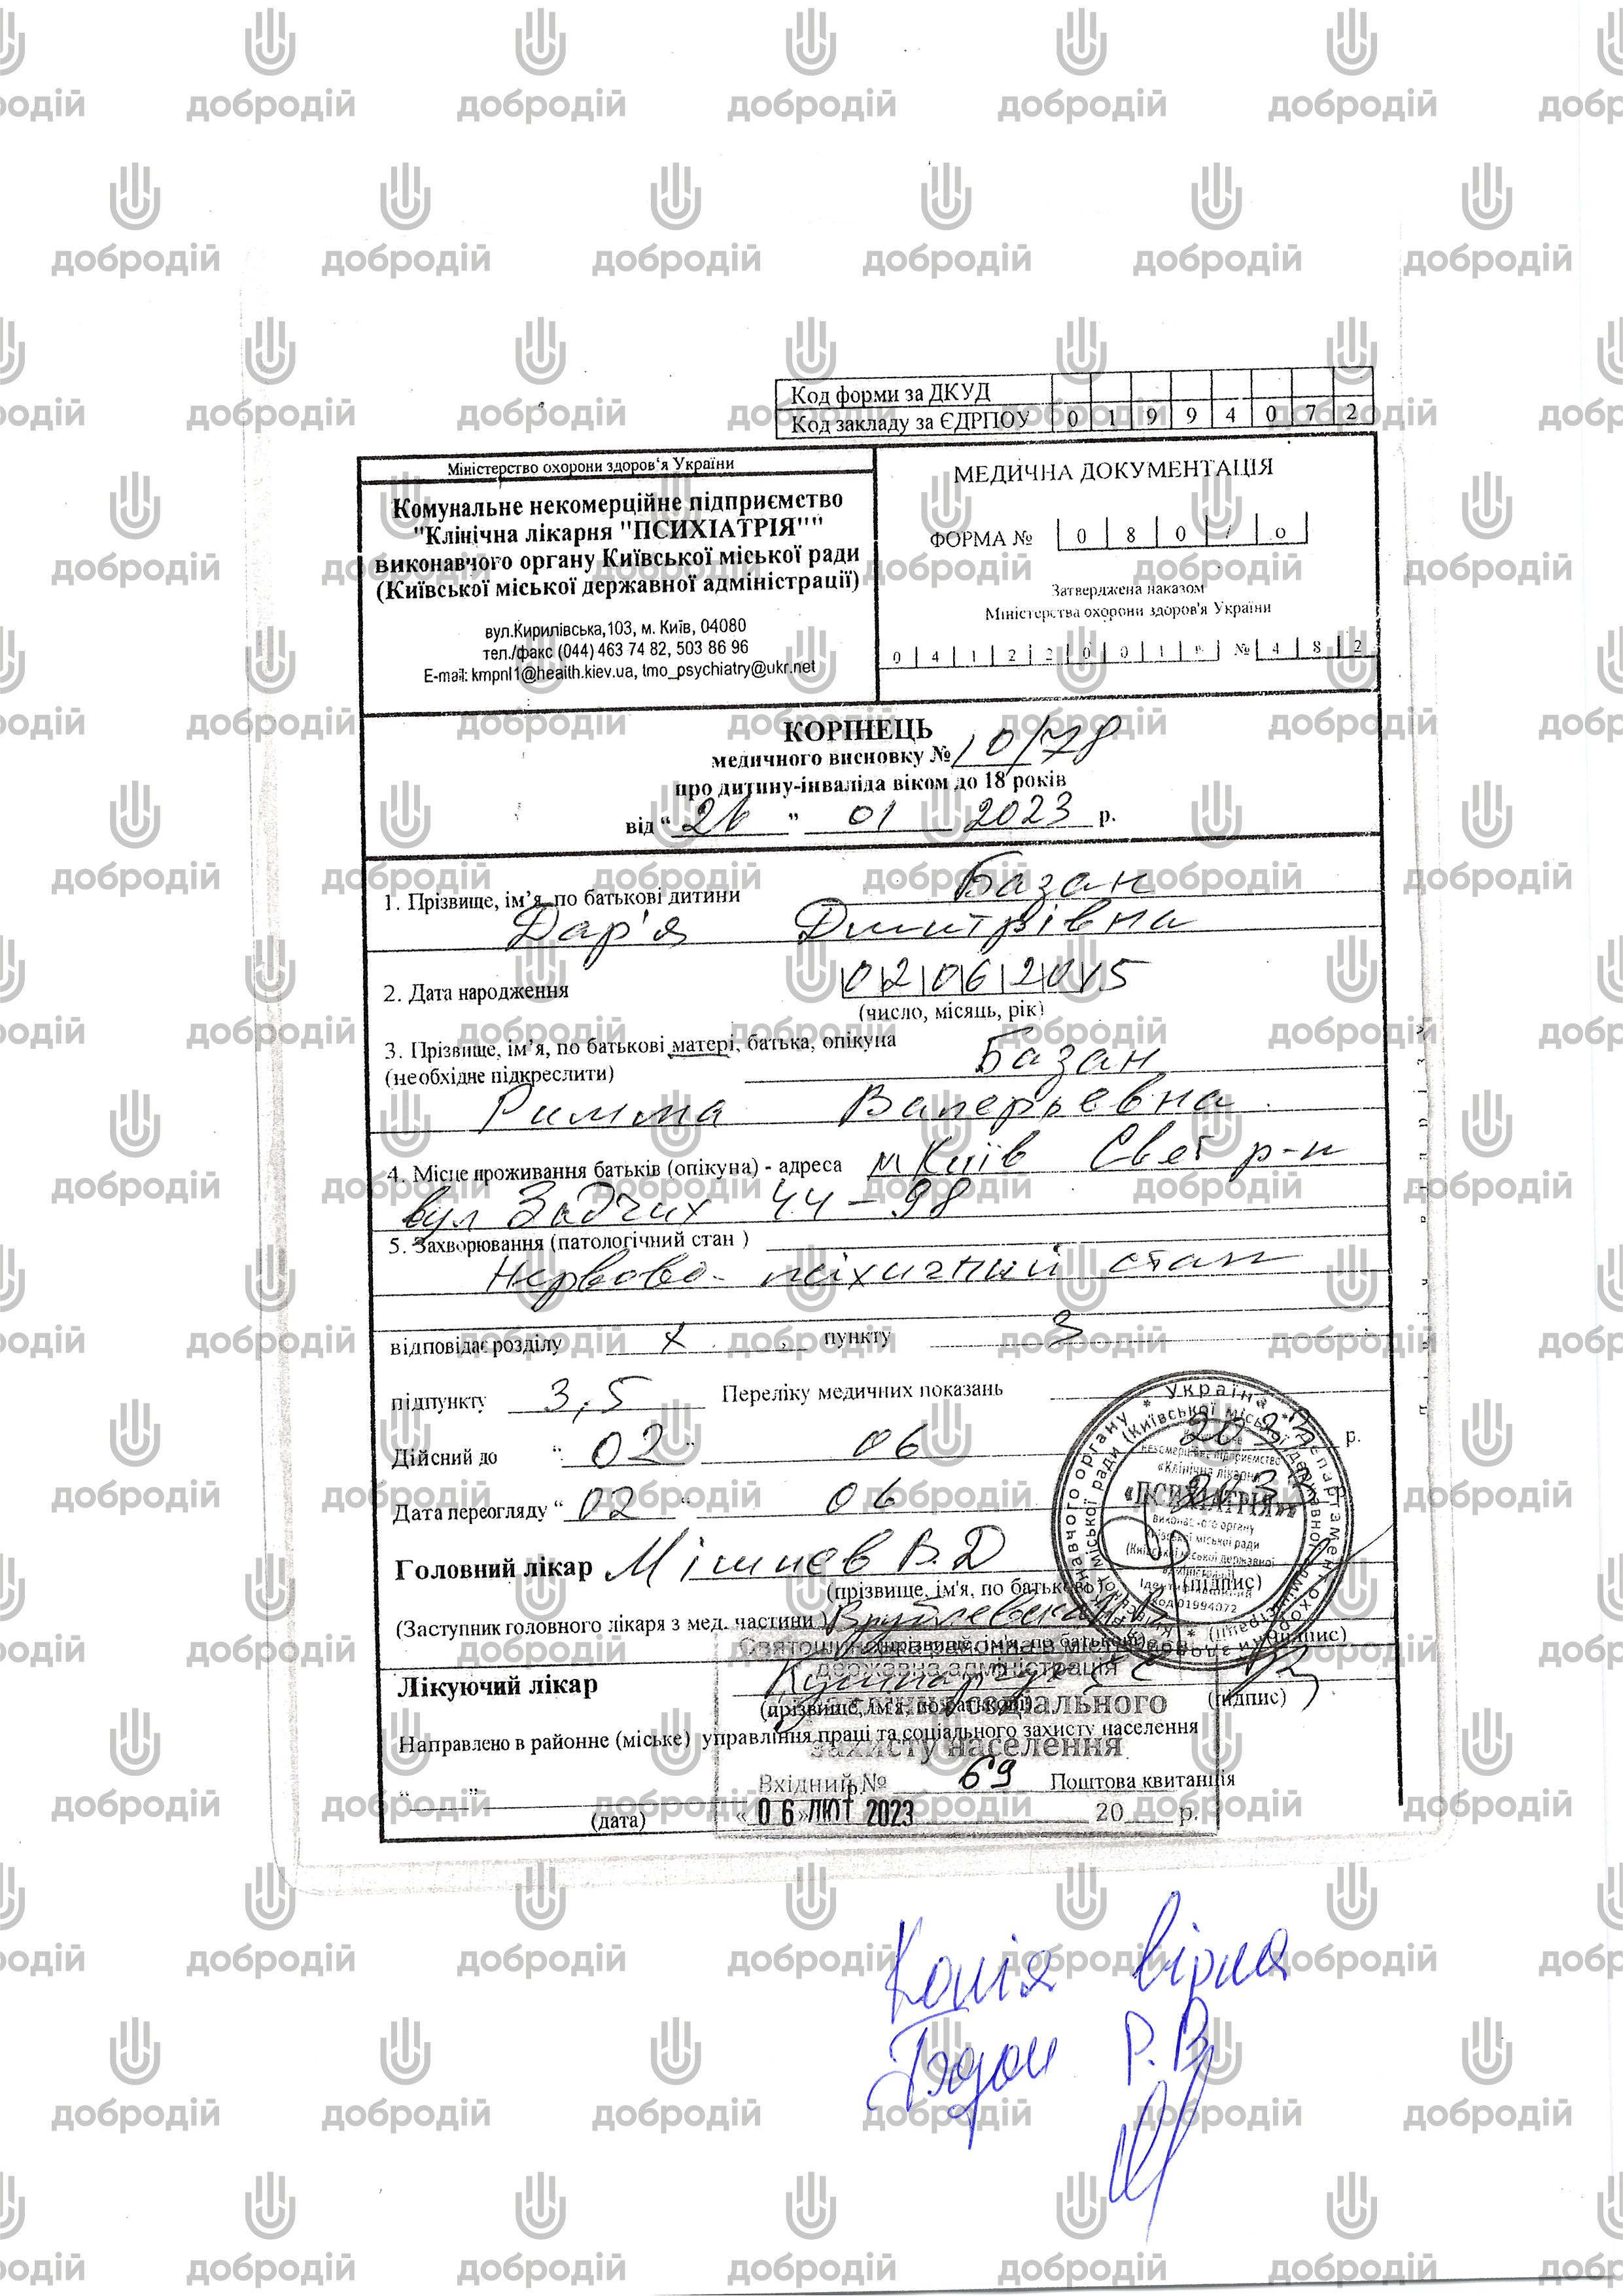 Код форми за ДКУД
Код закладу за ЄДРПОУ 0 1 9 9 4 0 7 2
Міністерство охорони здоров'я України
Комунальне некомерційне підприємство
"Клінічна лікарня "ПСИХІАТРІЯ""
виконавчого органу Київської міської ради
(Київської міської державної адміністрації)
вул.Кирилівська,103, м. Київ, 04080
тел./факс (044) 463 74 82, 503 86 96
E-mail: kmpnl1@health.kiev.ua, tmo_psychiatry@ukr.net
МЕДИЧНА ДОКУМЕНТАЦІЯ
ФОРМА № 0 8 0 / о
Затверджена наказом
Міністерства охорони здоров'я України
0 4 1 2 2 0 0 1 р № 4 8 2
КОРІНЕЦЬ
медичного висновку № 10/78
про дитину-інваліда віком до 18 років
від “ 26 ” 01 2023 р.
1. Прізвище, ім’я, по батькові дитини Базан
Дар'я Дмитрівна
2. Дата народження 02062015
(число, місяць, рік)
3. Прізвище, ім’я, по батькові матері, батька, опікуна
(необхідне підкреслити) Базан
Римма Валерьевна
4. Місце проживання батьків (опікуна) - адреса м Київ Свят р-н
вул Зодчих 44-98
5. Захворювання (патологічний стан )
Нервово-психичний стан
відповідає розділу X пункту 3
підпункту 3,5 Переліку медичних показань
Дійсний до “ 02 ” 06 р.
Дата переогляду “ 02 “ 06
Головний лікар Мішиєв В.Д
(прізвище, ім'я, по батькові) (підпис)
(Заступник головного лікаря з мед. частини )
(прізвище, ім'я, по батькові) (підпис)
Лікуючий лікар
(прізвище, ім'я, по батькові) (підпис)
Направлено в районне (міське) управління праці та соціального захисту населення
“ ” р. Поштова квитанція
(дата) 20 р.
державна адміністрація
соціального
захисту населення
Вхідний № 69
« 06 » ЛЮТ 2023
«ПСИХІАТРІЯ»
код 01994072
Копія вірна
Базан Р.В
добродій